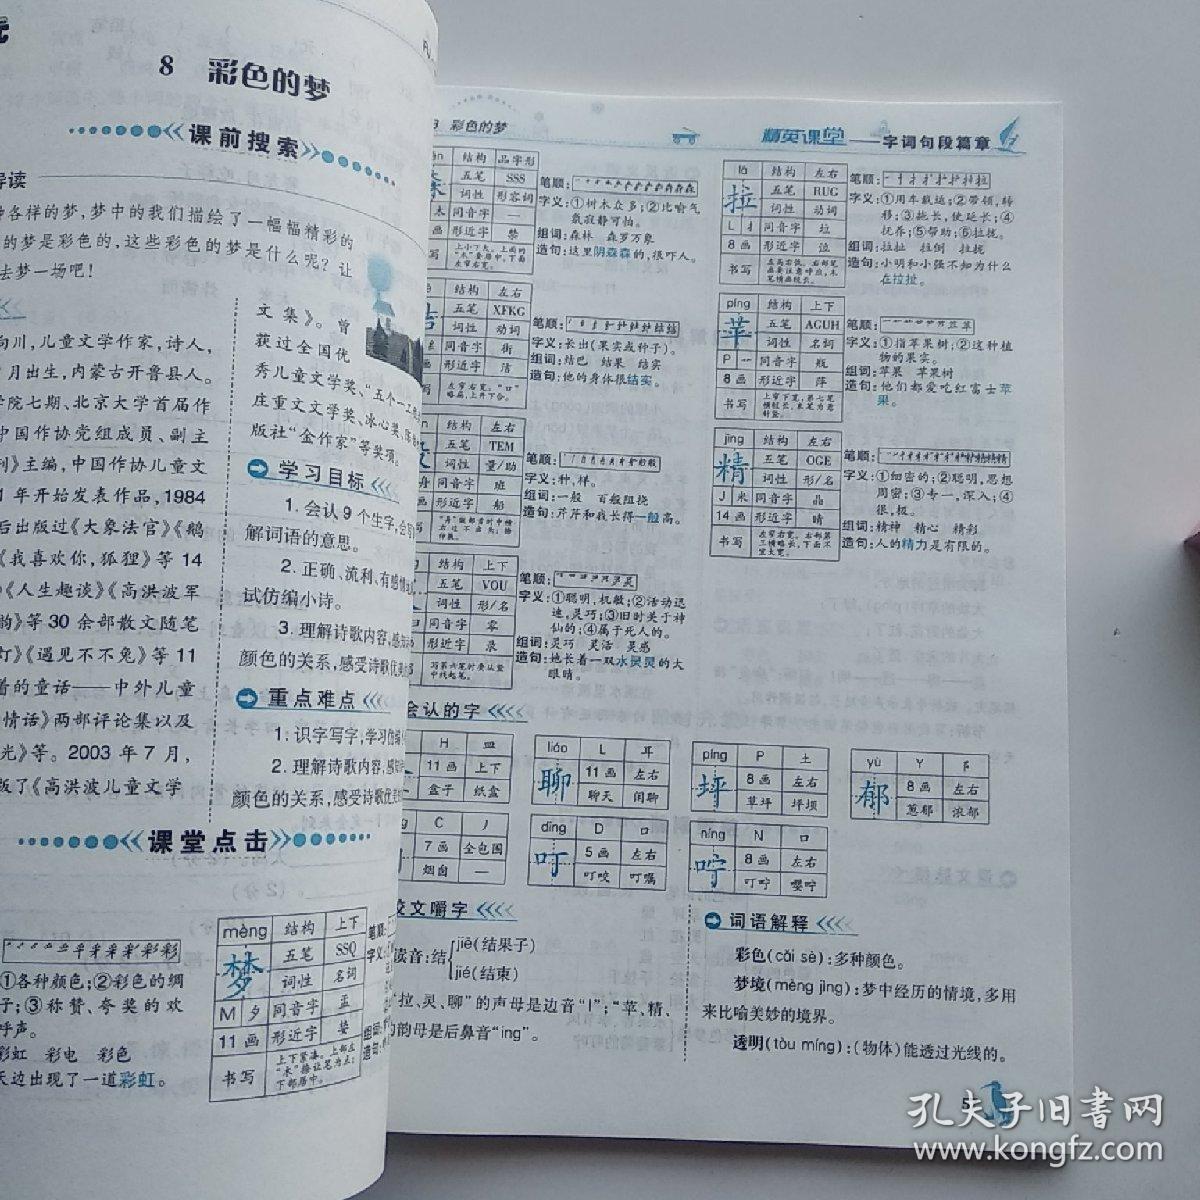 元
8 彩色的梦
课前搜索
导读
各样的梦,梦中的我们描绘了一幅幅精彩的
的梦是彩色的,这些彩色的梦是什么呢? 让
去梦一场吧!
向川,儿童文学作家,诗人,
月出生,内蒙古开鲁县人。
学院七期、北京大学首届作
中国作协党组成员、副主
刊》主编,中国作协儿童文
年开始发表作品,1984
后出版过《大象法官》《鹅
《我喜欢你,狐狸》等 14
《人生趣谈》《高洪波军
韵》等 30 余部散文随笔
灯》《遇见不不兔》等 11
着的童话——中外儿童
情话》两部评论集以及
光》等。2003 年 7 月,
版了《高洪波儿童文学
文集》。曾
获过全国优
秀儿童文学奖、“五个一工
庄重文文学奖、冰心奖、陈
版社“金作家”等奖项。
学习目标
1. 会认 9 个生字,会写
解词语的意思。
2. 正确、流利、有感情
试仿编小诗。
3. 理解诗歌内容,感
颜色的关系,感受诗歌优美
重点难点
1. 识字写字,学习仿编
2. 理解诗歌内容,感
颜色的关系,感受诗歌优
课堂点击
①各种颜色;②彩色的绸
子;③称赞、夸奖的欢
呼声。
彩虹 彩电 彩色
天边出现了一道彩虹。
mèng 结构 上下
梦 五笔 SSQ
词性 名词
M 夕 同音字 孟
11 画 形近字 婪
书写
上下紧凑。上部左
“木”捺让笔为点;
下部居中。
笔顺:
字义:
组词:
造句:
8 彩色的梦
精英课堂——字词句段篇章
结构 品字形
五笔 SSS
词性 形容词
木 同音字 —
画 形近字 禁
笔顺:
字义:①树木众多;②比喻气
氛寂静可怕。
组词:森林 森罗万象
造句:这里阴森森的,很吓人。
结构 左右
五笔 XFKG
词性 动词
同音字 街
形近字 洁
左窄右宽;“口”
略扁,上开下合。
笔顺:
字义:长出(果实或种子)。
组词:结巴 结果 结实
造句:他的身体很结实。
结构 左右
五笔 TEM
词性 量/助
舟 同音字 班
画 形近字 船
笔顺:
字义:种,样。
组词:一般 百般阻挠
造句:芹芹和我长得一般高。
结构 上下
五笔 VOU
词性 形/名
同音字 零
形近字 录
写第六笔时要从竖
中线起笔。
笔顺:
字义:①聪明,机敏;②活动迅
速,灵巧;③旧时关于神
仙的;④属于死人的。
组词:灵巧 灵活 灵感
造句:她长着一双水灵灵的大
眼睛。
lā 结构 左右
拉 五笔 RUG
词性 动词
L 扌 同音字 垃
8 画 形近字 泣
书写
笔顺:
字义:①用车载运;②带领,转
移;③拖长,使延长;④
抚养;⑤帮助;⑥拉拢。
组词:拉扯 拉倒 拉拢
造句:小明和小强不知为什么
在拉扯。
píng 结构 上下
苹 五笔 AGUH
词性 名词
P 同音字 瓶
8 画 形近字 萍
书写
笔顺:
字义:①指苹果树;②这种植
物的果实。
组词:苹果 苹果树
造句:他们都爱吃红富士苹
果。
jīng 结构 左右
精 五笔 OGE
词性 形/名
J 米 同音字 晶
14 画 形近字 晴
书写
左窄右宽,右部第
三横略长,下面不
宜太宽。
笔顺:
字义:①细密的;②聪明,思想
周密;③专一,深入;④
很,极。
组词:精神 精心 精彩
造句:人的精力是有限的。
会认的字
H 皿
11 画 上下
盒子 纸盒
liáo L 耳
聊 11 画 左右
聊天 闲聊
píng P 土
坪 8 画 左右
草坪 坪坝
yù Y 阝
郁 8 画 左右
葱郁 浓郁
C 丿
7 画 全包围
烟囱 —
dīng D 口
叮 5 画 左右
叮咬 叮嘱
níng N 口
咛 8 画 左右
叮咛 嘤咛
咬文嚼字
读音:结
jiē(结果子)
jié(结束)
“拉、灵、聊”的声母是边音“l”;“苹、精、
的韵母是后鼻音“ing”。
词语解释
彩色(cǎi sè):多种颜色。
梦境(mèng jìng):梦中经历的情境,多用
来比喻美妙的境界。
透明(tòu míng):(物体)能透过光线的。
5
孔夫子旧书网
www.kongfz.com